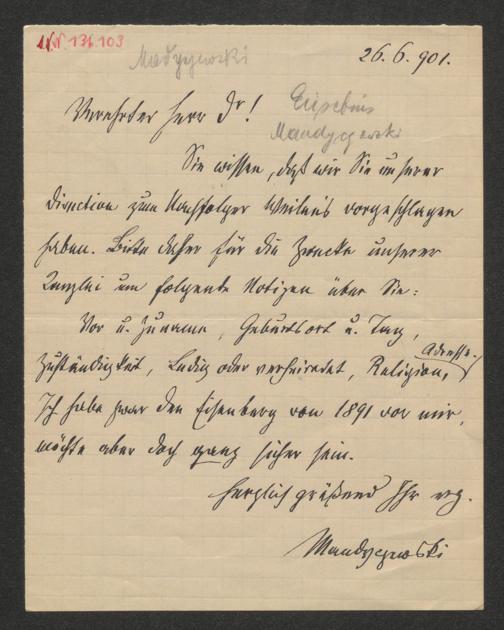 I.N. 134.103
Madyczewski
26.6.901.
Verehrter Herr Dr!
Eusebius
Mandyczewski
Sie wissen, daß wir Sie unserer
Direction zum Nachfolger Weilens vorgeschlagen
haben. Bitte daher für die Zwecke unserer
Kanzlei um folgende Notizen über Sie:
Vor u. Zuname, Geburtsort u. Tag,
Adresse.
Zuständigkeit, Ledig oder verheiratet, Religion,
Ich habe zwar den Eisenberg von 1891 vor mir,
möchte aber doch ganz sicher sein.
Herzlich grüßend Ihr erg.
Mandyczewski